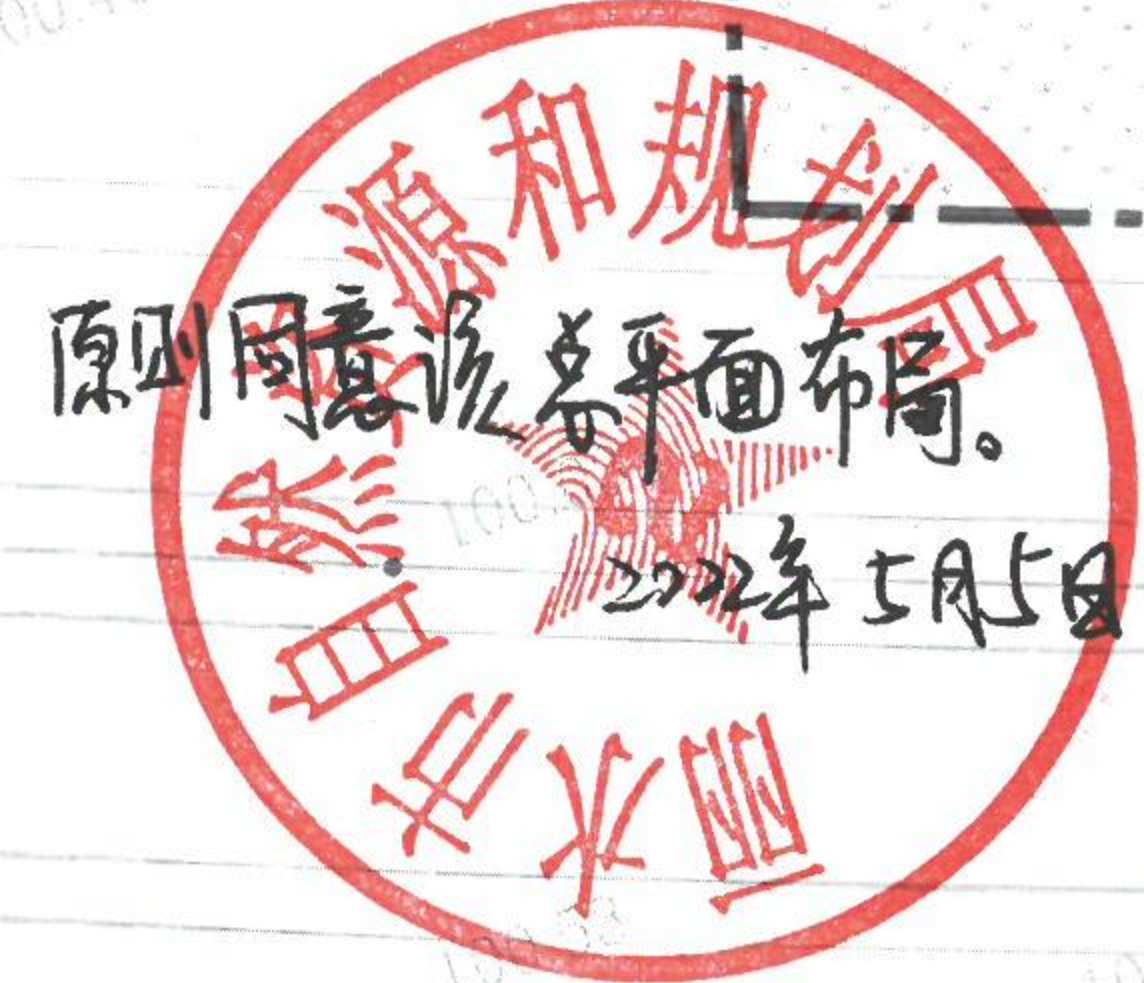 丽水市自然资源和规划局
原则同意该总平面布局。
2022年5月5日